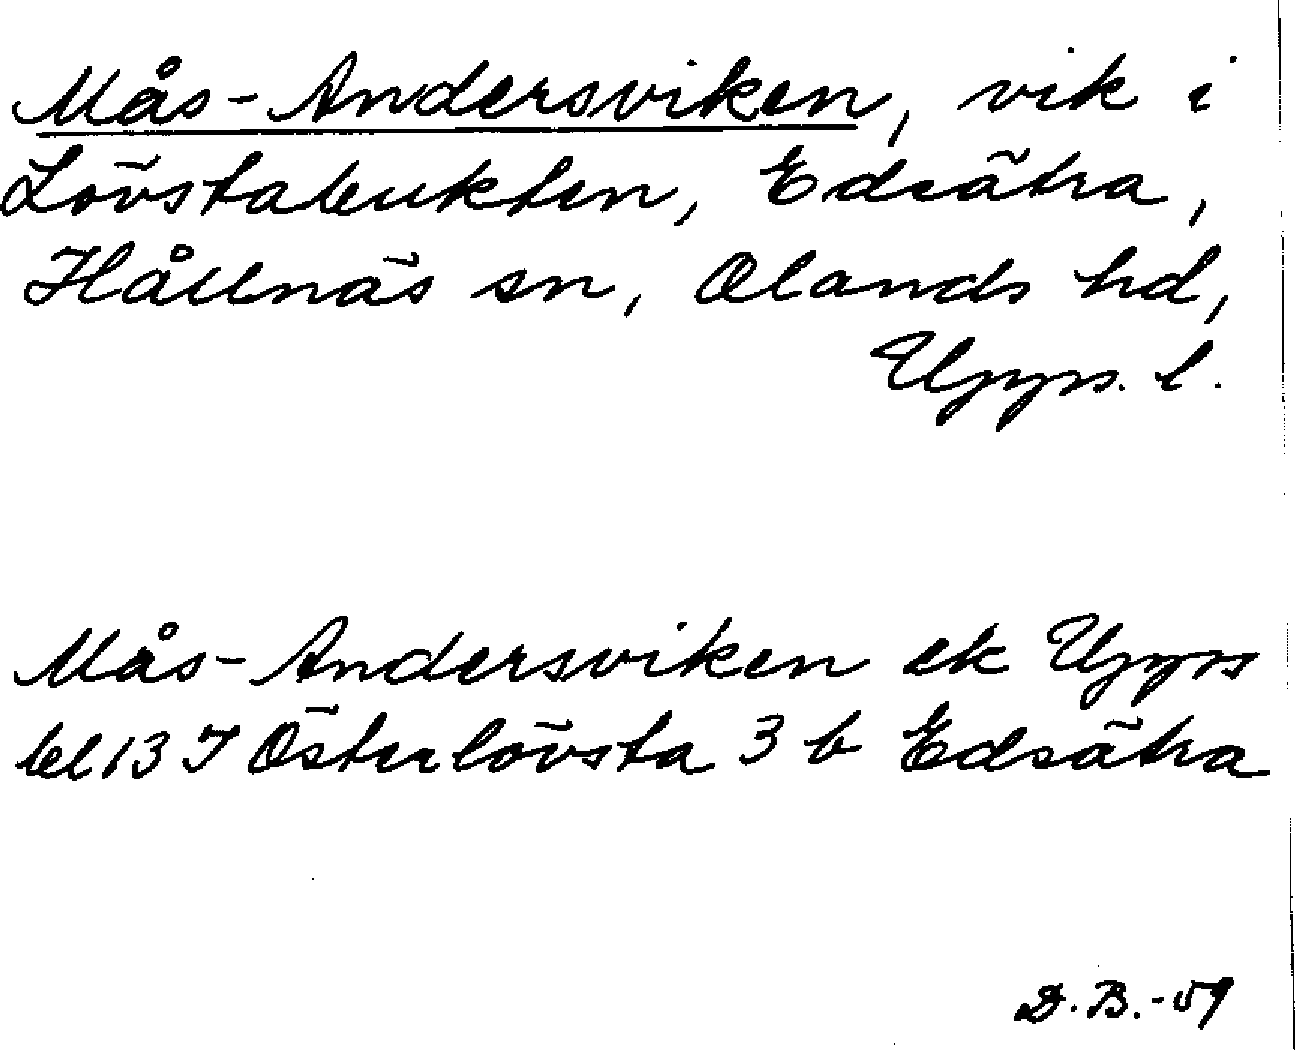 Mås-Andersviken, vik i
Lövstabukten, Edsätra,
Hållnäs sn, Olands hd,
Upps. l.
Mås-Andersviken ek Upps
bl 13 I Österlövsta 3 b Edsätra
D.B.-59